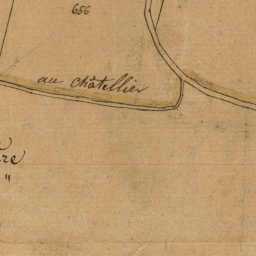 656
au châtellier
re
"